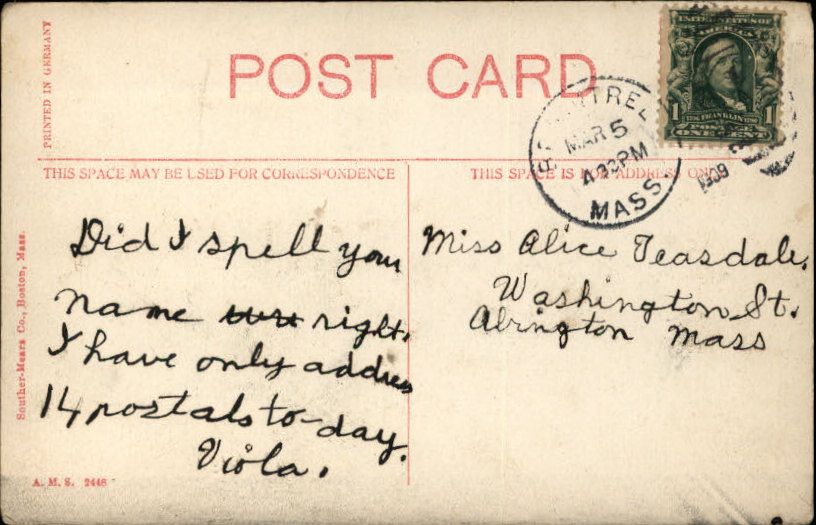 PRINTED IN GERMANY
POST CARD
UNITED STATES OF
AMERICA
1 1
FRANKLIN
POSTAGE
ONE CENT
BRAINTREE
MAR 5
PM
MASS
1909
THIS SPACE MAY BE USED FOR CORRESPONDENCE
THIS SPACE IS FOR ADDRESS ONLY
Did I spell your
name right.
I have only addres
14 postals to-day.
Viola.
Miss Alice Teasdale.
Washington St.
Abington Mass
Souther-Mears Co., Boston, Mass.
A. M. S. 2446